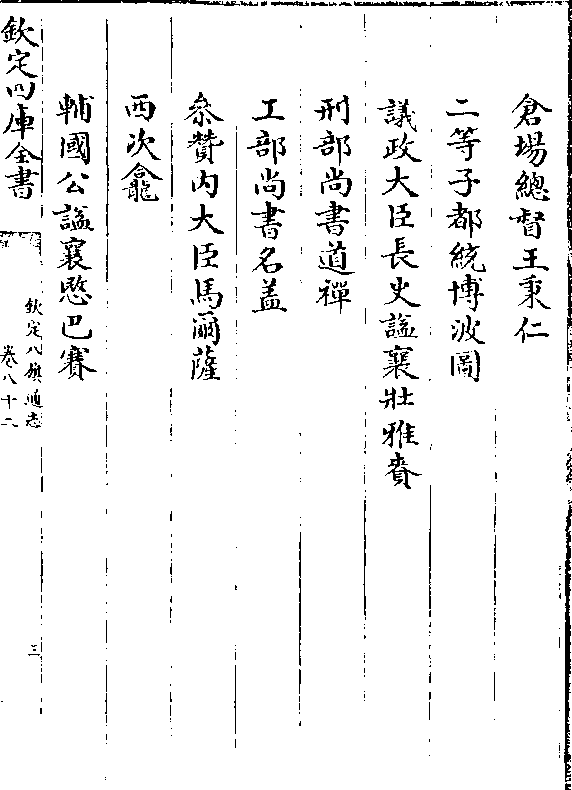 倉場總督王秉仁
二等子都統博波圖
議政大臣長史諡襄壯雅賚
刑部尚書道禪
工部尚書名盖
叅贊内大臣馬爾薩
西次龕
輔國公諡襄愍巴賽
欽定四庫全書
欽定八旗通志
卷八十二
三